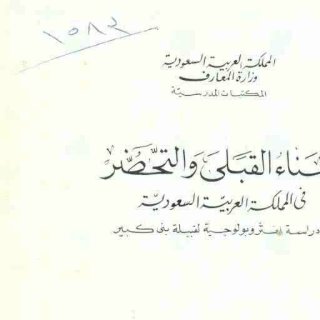 ١٥٨٢
المملكة العربية السعودية
وزارة المعارف
المكتبات المدرسية
بناء القبلى والتحضر
فى المملكة العربية السعودية
دراسة نثروبولوجية لقبيلة بنى كبير